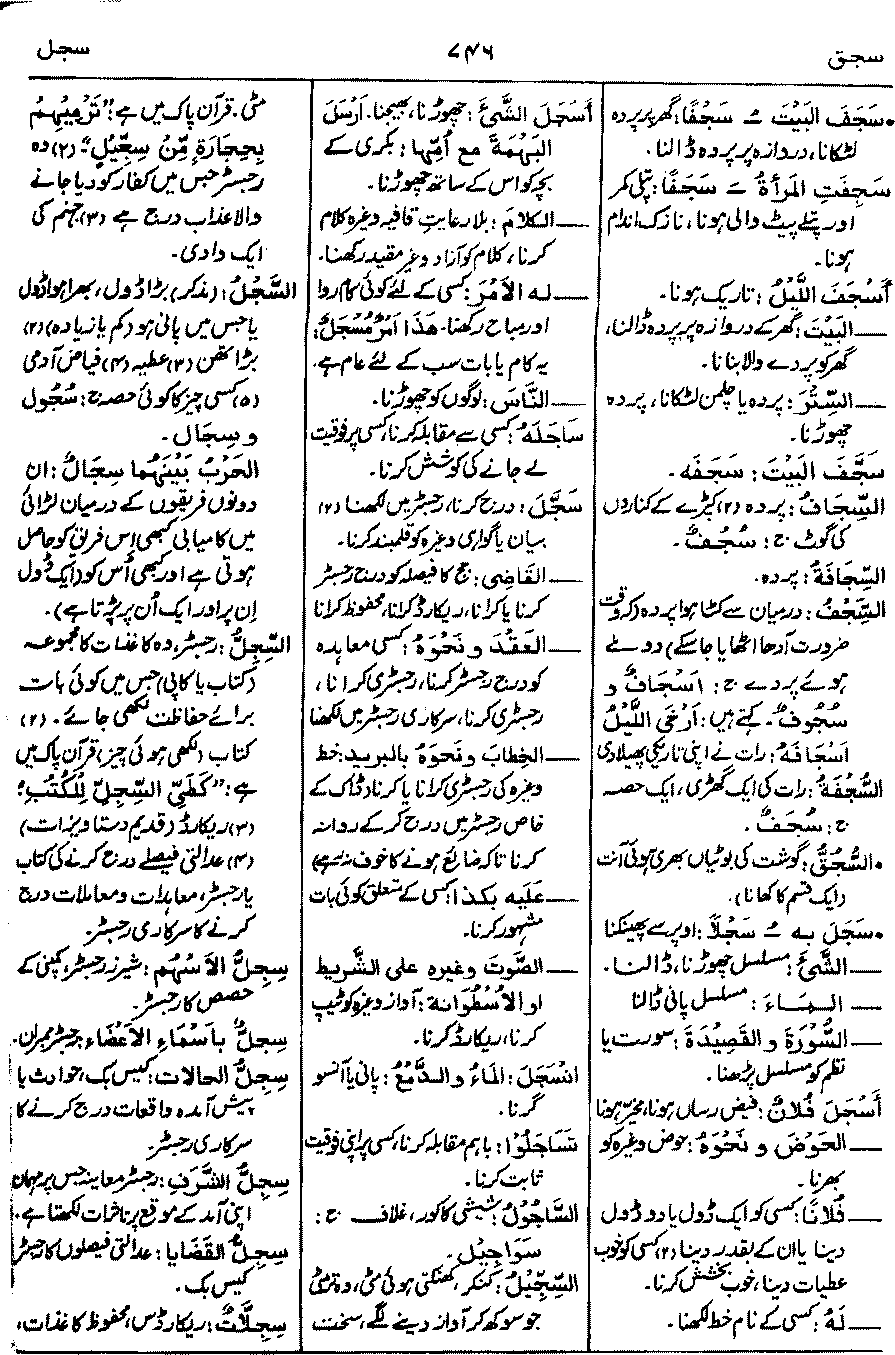 سجق
۷۴۶
سجل
•سَجَفَ البَيْتَ ـُ سَجْفًا: گھر پر پردہ
لٹکانا، دروازہ پر پردہ ڈالنا۔
سَجِفَتِ المَرأةُ ـَ سَجَفًا: پتلی کمر
اور پتلے پیٹ والی ہونا، نازک اندام
ہونا۔
أَسْجَفَ اللَّيْلُ: تاریک ہونا۔
ـــ البَيْتَ: گھر کے دروازہ پر پردہ ڈالنا،
گھر کو پردے والا بنانا۔
ـــ السِّتْرَ: پردہ یا چلمن لٹکانا، پردہ
چھوڑنا۔
سَجَّفَ البَيْتَ: سَجَفَه۔
السِّجَافُ: پردہ (۲) کپڑے کے کناروں
کی گوٹ ج: سُجُفٌ۔
السِّجَافَةُ: پردہ۔
السَّجْفُ: درمیان سے کٹا ہوا پردہ (کہ وقت
ضرورت آدھا اٹھایا جاسکے) دو سلے
ہوئے پردے ج: اَسْجَافٌ و
سُجُوفٌ۔ کہتے ہیں: اَرْخَی اللَّيْلُ
اَسْجَافَهُ: رات نے اپنی تاریکی پھیلا دی
السُّجْفَةُ: رات کی ایک گھڑی، ایک حصہ
ج: سُجَفٌ۔
•السُّجُقُّ: گوشت کی بوٹیاں بھری ہوئی آنت
(ایک قسم کا کھانا)۔
•سَجَلَ بِه ـُ سَجْلاً: اوپر سے پھینکنا
ـــ الشَّيْءَ: مسلسل چھوڑنا، ڈالنا۔
ـــ المَاءَ: مسلسل پانی ڈالنا
ـــ السُّوْرَةَ و القَصِيْدَةَ: سورت یا
نظم کو مسلسل پڑھنا۔
أَسْجَلَ فُلَانٌ: فیض رساں ہونا، مخیّر ہونا
ـــ الحَوْضَ و نَحْوَهُ: حوض وغیرہ کو
بھرنا۔
ـــ فُلَانًا: کسی کو ایک ڈول یا دو ڈول
دینا یا ان کے بقدر دینا (۲) کسی کو خوب
عطیات دینا، خوب بخشش کرنا۔
ـــ لَهُ: کسی کے نام خط لکھنا۔
أَسْجَلَ الشَّيْءَ: چھوڑنا، بھیجنا۔ اَرْسَلَ
البَهْمَةَ مع اُمِّها: بکری کے
بچہ کو اس کے ساتھ چھوڑنا۔
ـــ الكلامَ: بلا رعایتِ قافیہ وغیرہ کلام
کرنا، کلام کو آزاد وغیر مقید رکھنا۔
ـــ له الأمْرَ: کسی کے لئے کوئی کام روا
اور مباح رکھنا۔ هَذَا اَمْرٌ مُسْجَلٌ:
یہ کام یا بات سب کے لئے عام ہے۔
ـــ النَّاسَ: لوگوں کو چھوڑنا۔
سَاجَلَهُ: کسی سے مقابلہ کرنا، کسی پر فوقیت
لے جانے کی کوشش کرنا۔
سَجَّلَ: درج کرنا، رجسٹر میں لکھنا (۲)
بیان یا گواہی وغیرہ کو قلمبند کرنا۔
ـــ القَاضِي: جج کا فیصلہ کو درج رجسٹر
کرنا یا کرانا، ریکارڈ کرانا، محفوظ کرانا
ـــ العَقْدَ و نَحْوَهُ: کسی معاہدہ
کو درج رجسٹر کرنا، رجسٹری کرانا،
رجسٹری کرنا، سرکاری رجسٹر میں لکھنا
ـــ الخِطابَ ونَحْوَهُ بالبريد: خط
وغیرہ کی رجسٹری کرانا یا کرنا (ڈاک کے
خاص رجسٹر میں درج کر کے روانہ
کرنا تاکہ ضائع ہونے کا خوف نہ رہے)
ـــ عَلَيه بكذا: کسی کے متعلق کوئی بات
مشہور کرنا۔
ـــ الصَّوْتَ وغيره على الشَّريط
او الاُسْطُوَانة: آواز وغیرہ کو ٹیپ
کرنا، ریکارڈ کرنا۔
انْسَجَلَ: المَاءُ و الدَّمْعُ: پانی یا آنسو
گرنا۔
تَسَاجَلُوْا: باہم مقابلہ کرنا، کسی پر اپنی فوقیت
ثابت کرنا۔
السَّاجُوْلُ: شیشی کا کور، غلاف ج:
سَوَاجِيْل۔
السِّجِّيْلُ: کنکر، کھنکتی ہوئی مٹی، وہ تر مٹی
جو سوکھ کر آواز دینے لگے، سخت
مٹی۔ قرآن پاک میں ہے: "تَرْمِيْهِمْ
بِحِجَارَةٍ مِّنْ سِجِّيْلٍ" (۲) وہ
رجسٹر جس میں کفار کو دیا جانے
والا عذاب درج ہے (۳) جہنم کی
ایک وادی۔
السَّجْلُ: (مذکر) بڑا ڈول، بھرا ہوا ڈول
یا جس میں پانی ہو (کم یا زیادہ) (۲)
بڑا تھن (۳) عطیہ (۴) فیاض آدمی
(۵) کسی چیز کا کوئی حصہ ج: سُجُول
و سِجَال۔
الحَرْبُ بَيْنَهُما سِجَالٌ: ان
دونوں فریقوں کے درمیان لڑائی
میں کامیابی کبھی اِس فریق کو حاصل
ہوتی ہے اور کبھی اُس کو (ایک ڈول
اِن پر اور ایک اُن پر پڑتا ہے)۔
السِّجِلُّ: رجسٹر، وہ کاغذات کا مجموعہ
(کتاب یا کاپی) جس میں کوئی بات
برائے حفاظت لکھی جائے۔ (۲)
کتاب (لکھی ہوئی چیز) قرآن پاک میں
ہے: "كَطَيِّ السِّجِلِّ لِلْكُتُبِ"
(۳) ریکارڈ (قدیم دستاویزات)
(۴) عدالتی فیصلے درج کرنے کی کتاب
یا رجسٹر، معاہدات و معاملات درج
کرنے کا سرکاری رجسٹر۔
سِجِلُّ الأَسْهُم: شیئرز رجسٹر، کمپنی کے
حصص کا رجسٹر۔
سِجِلٌّ بأسْمَاءِ الأعْضَاء: رجسٹر ممبران۔
سِجِلُّ الحالات: کیس بک، حوادث یا
پیش آمدہ واقعات درج کرنے کا
سرکاری رجسٹر۔
سِجِلُّ الشَّرَفِ: رجسٹر معاینہ جس پر مہمان
اپنی آمد کے موقع پر تاثرات لکھتا ہے۔
سِجِلُّ القَضَايا: عدالتی فیصلوں کا رجسٹر
کیس بک۔
سِجِلَّاتٌ: ریکارڈس، محفوظ کاغذات،